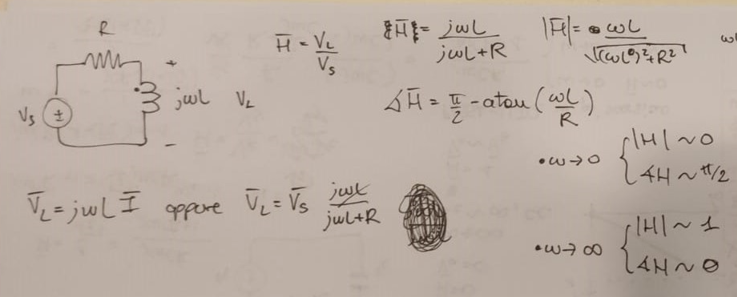 R
+
V_s ± jωL V_L
-
H̅ = V_L / V_s
H̅ = jωL / (jωL + R)
|H̅| = ωL / √((ωL)² + R²)
ω
∡H̅ = π/2 - atan (ωL / R)
• ω → 0 { |H| ~ 0
∡H ~ π/2
V̅_L = jωL I̅ oppure V̅_L = V̅_s jωL / (jωL + R)
• ω → ∞ { |H| ~ 1
∡H ~ 0